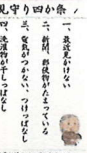 見守り四か条
一、最近見かけない
二、新聞、郵便物がたまっている
三、電気がつかない、つけっぱなし
四、洗濯物が干しっぱなし